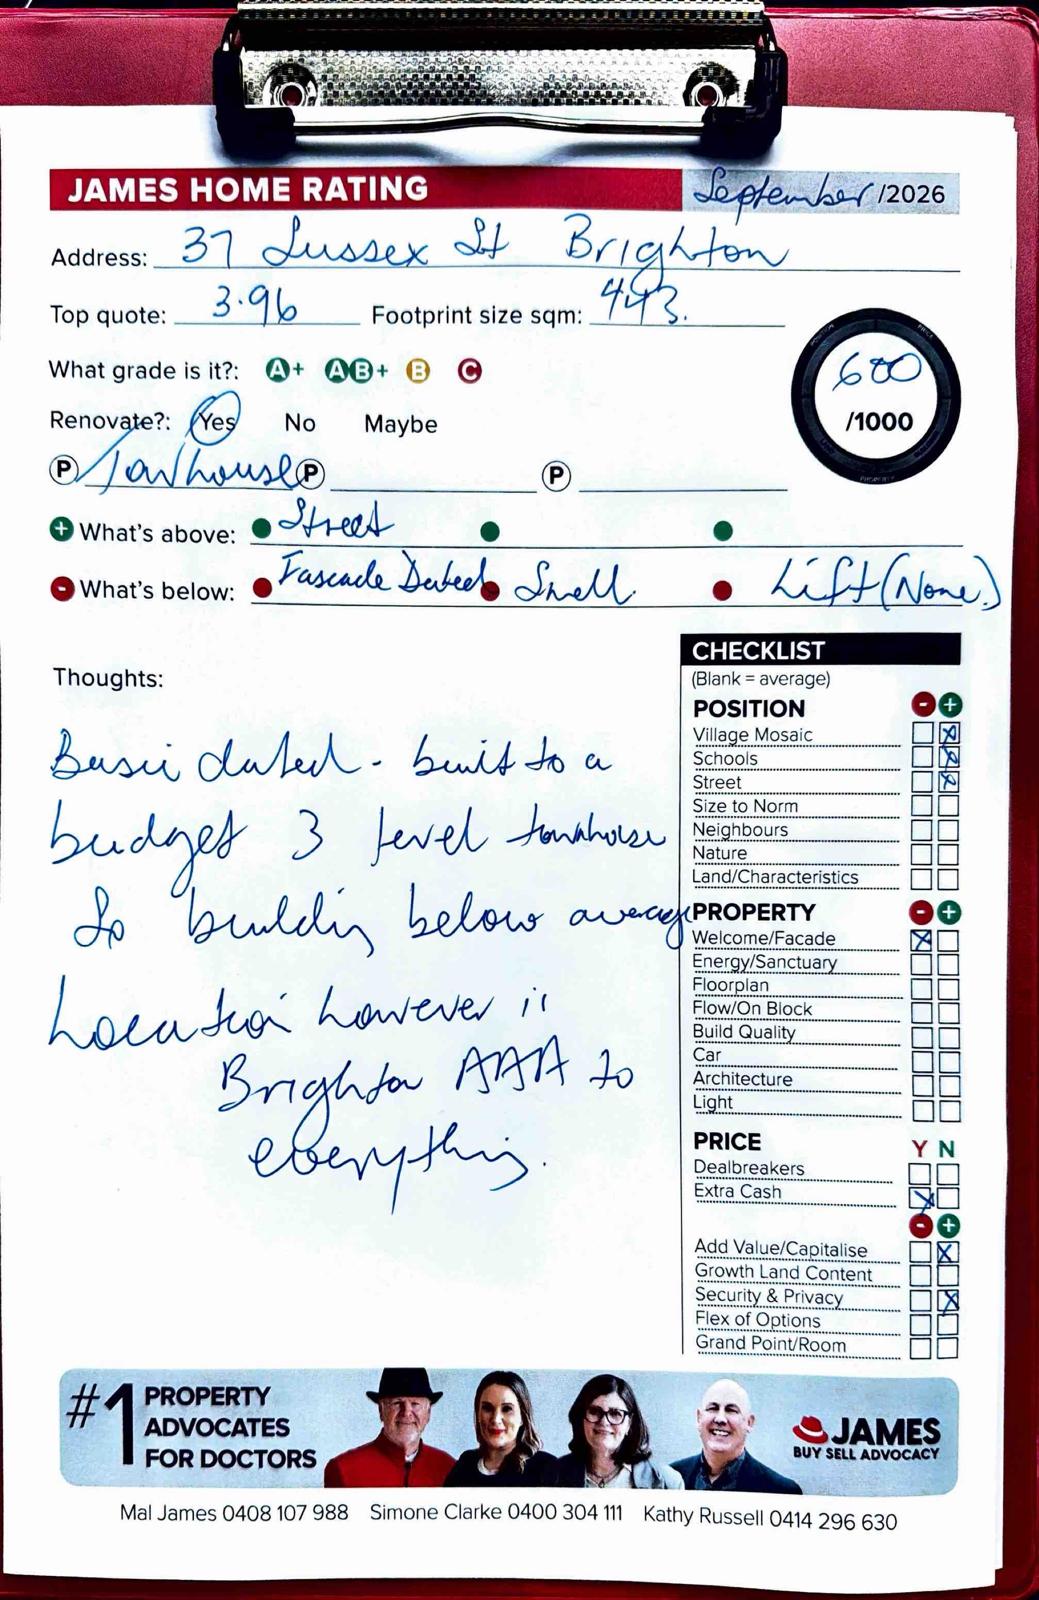 JAMES HOME RATING September /2026
Address: 37 Sussex St Brighton
Top quote: 3.96 Footprint size sqm: 443.
What grade is it?: A+ AB+ B C
680 /1000
Renovate?: Yes No Maybe
P Townhouse P P
+ What's above: Street
- What's below: Fascade Dated Small Lift (None.)
Thoughts:
Basic dated - built to a
budget 3 level townhouse
So building below average
Location however is
Brighton AAA to
everything.
CHECKLIST
(Blank = average)
POSITION - +
Village Mosaic
Schools
Street
Size to Norm
Neighbours
Nature
Land/Characteristics
PROPERTY - +
Welcome/Facade
Energy/Sanctuary
Floorplan
Flow/On Block
Build Quality
Car
Architecture
Light
PRICE Y N
Dealbreakers
Extra Cash
- +
Add Value/Capitalise
Growth Land Content
Security & Privacy
Flex of Options
Grand Point/Room
#1 PROPERTY
ADVOCATES
FOR DOCTORS
JAMES
BUY SELL ADVOCACY
Mal James 0408 107 988 Simone Clarke 0400 304 111 Kathy Russell 0414 296 630